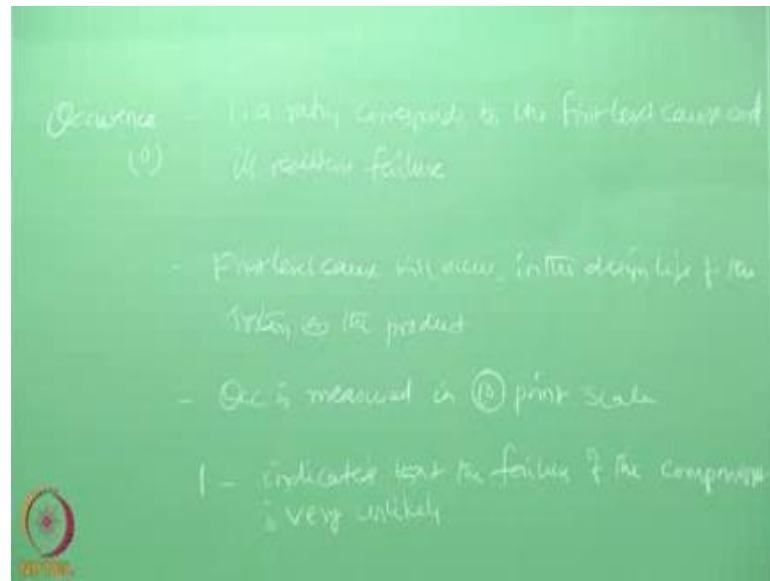 Occurence - is a rating corresponds to the first level cause and
(O) its resultant failure
- First level cause will occur, in the design life of the
system or the product
- Occ is measured in 10 point scale
1 - indicates that the failure of the component
is very unlikely
NPTEL